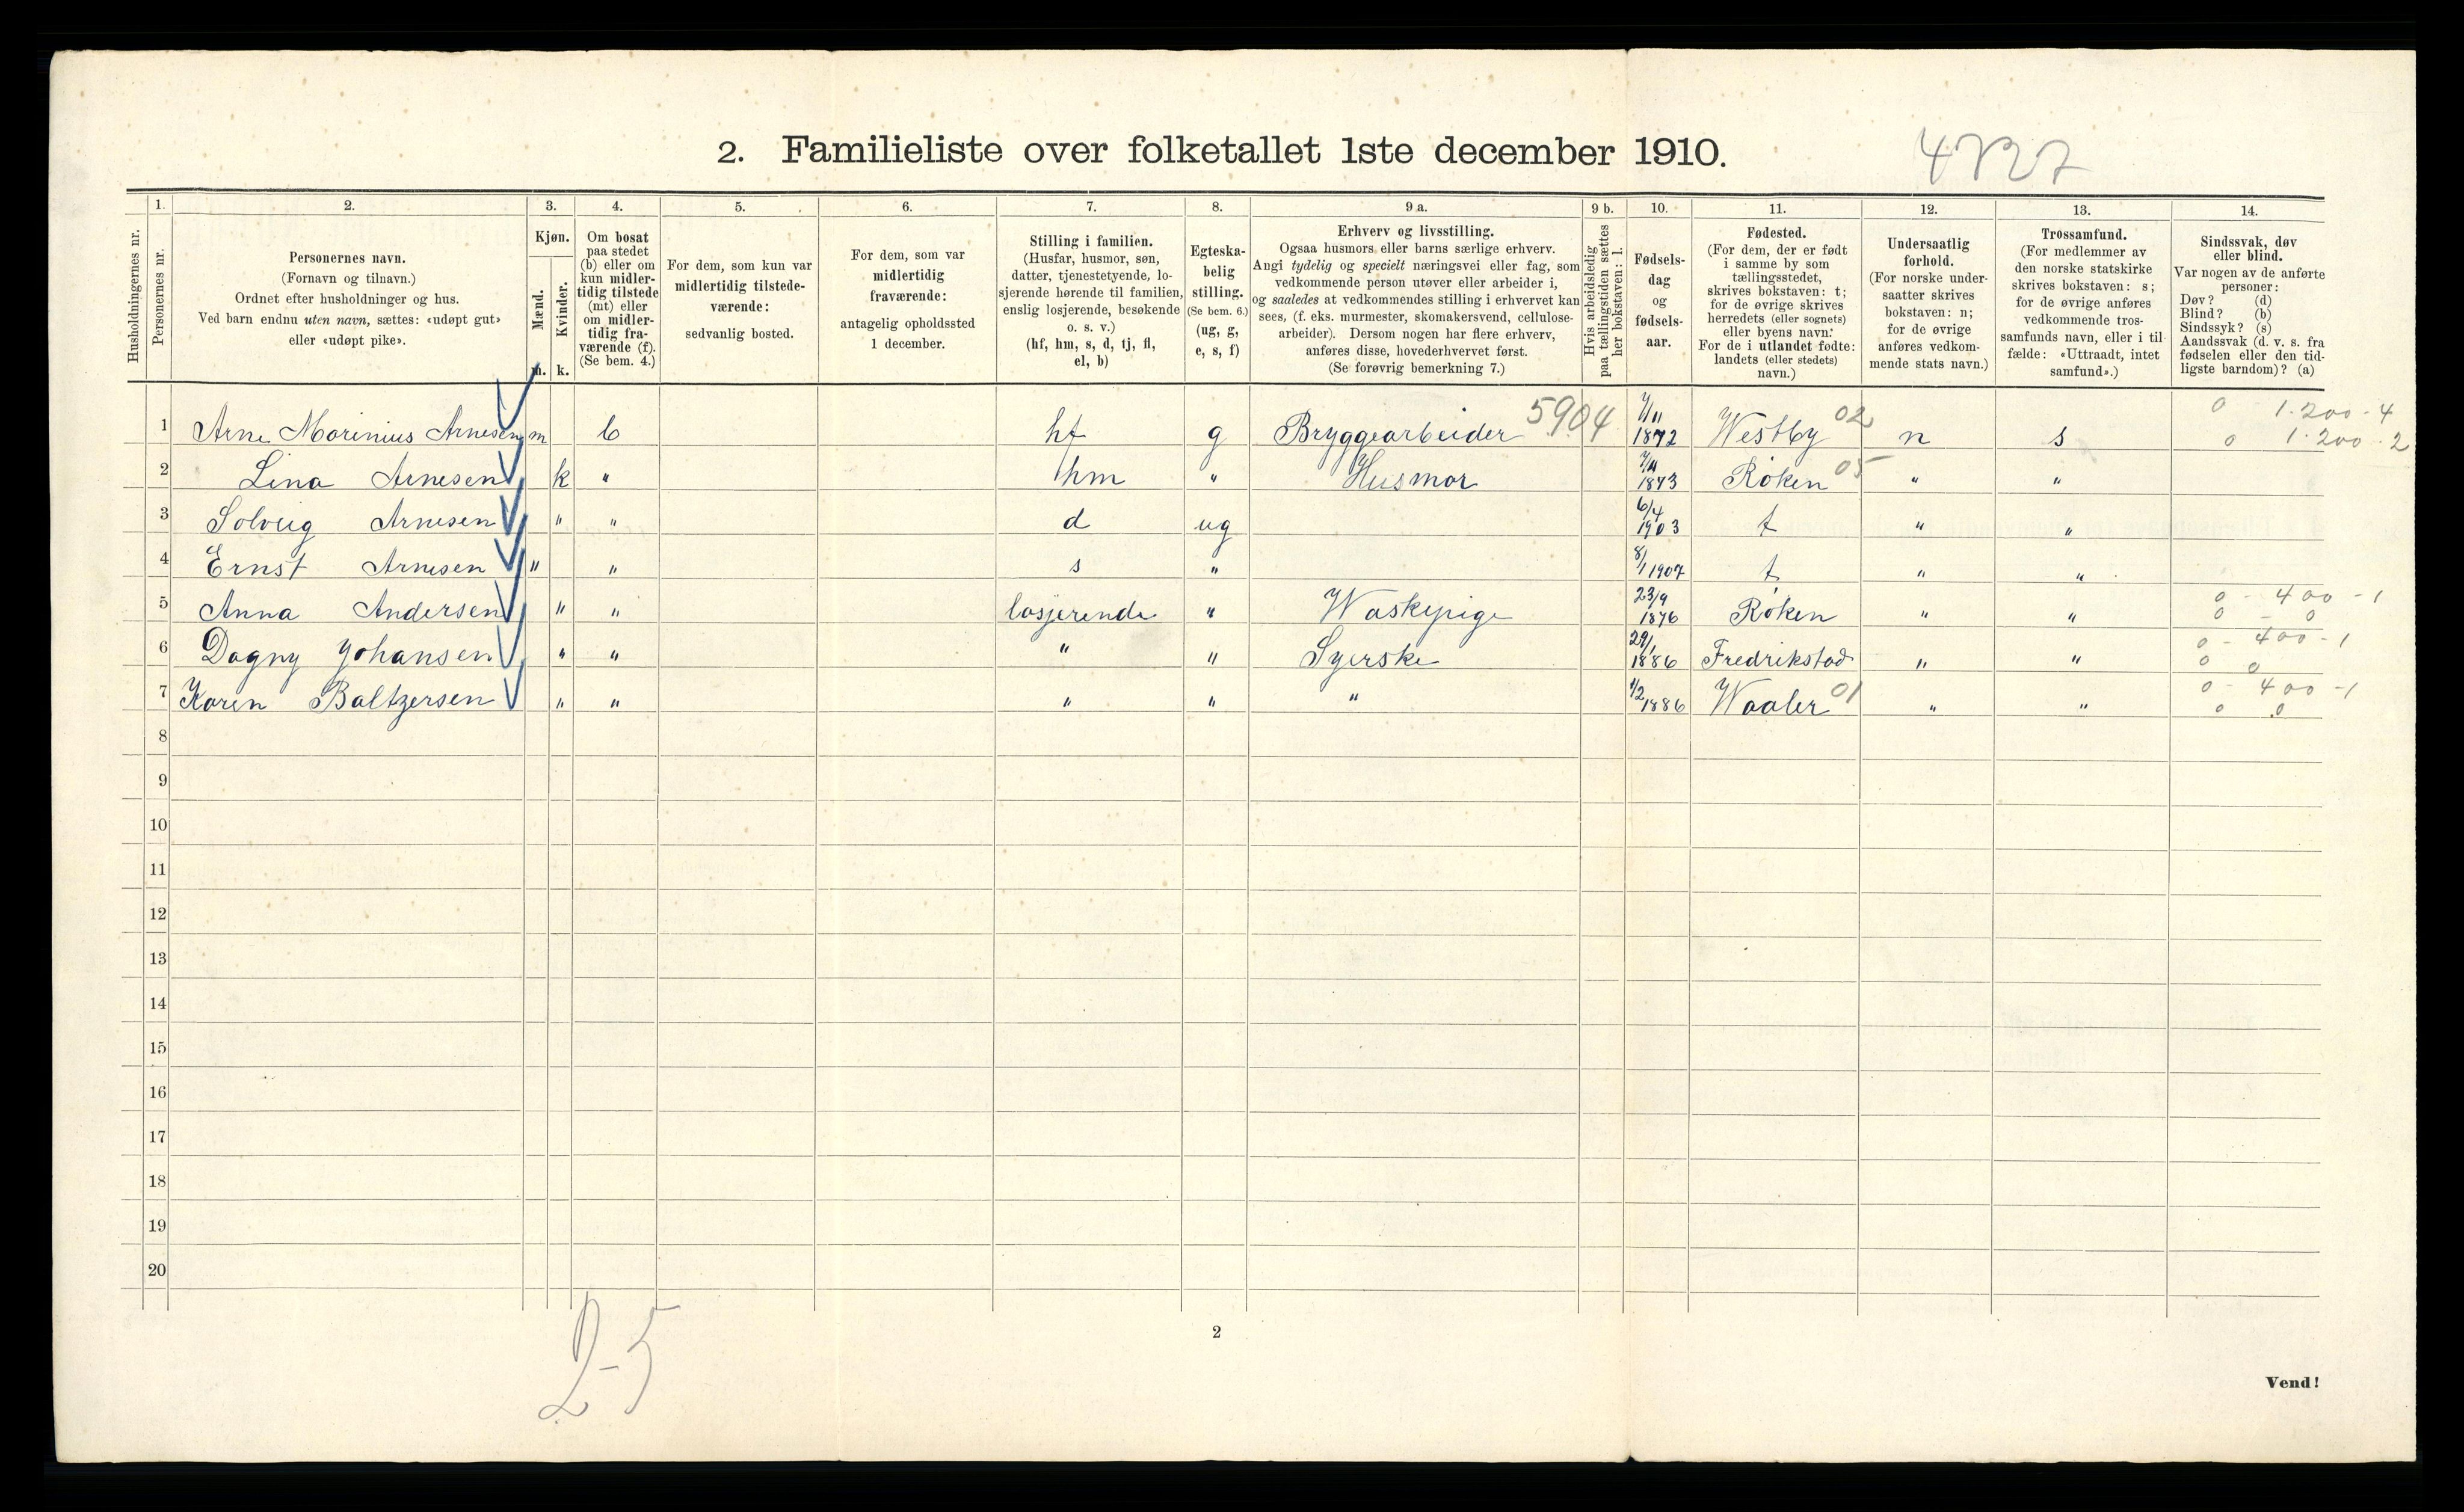 2. Familieliste over folketallet 1ste december 1910.
4727
Husholdningernes nr.
1.
Personernes nr.
2.
Personernes navn.
(Fornavn og tilnavn.)
Ordnet efter husholdninger og hus.
Ved barn endnu uten navn, sættes: «udøpt gut»
eller «udøpt pike».
3.
Kjøn.
Mænd.
Kvinder.
m. k.
4.
Om bosat
paa stedet
(b) eller om
kun midler-
tidig tilstede
(mt) eller
om midler-
tidig fra-
værende (f).
(Se bem. 4.)
5.
For dem, som kun var
midlertidig tilstede-
værende:
sedvanlig bosted.
6.
For dem, som var
midlertidig
fraværende:
antagelig opholdssted
1 december.
7.
Stilling i familien.
(Husfar, husmor, søn,
datter, tjenestetyende, lo-
sjerende hørende til familien,
enslig losjerende, besøkende
o. s. v.)
(hf, hm, s, d, tj, fl,
el, b)
8.
Egteska-
belig
stilling.
(Se bem. 6.)
(ug, g,
e, s, f)
9 a.
Erhverv og livsstilling.
Ogsaa husmors eller barns særlige erhverv.
Angi tydelig og specielt næringsvei eller fag, som
vedkommende person utøver eller arbeider i,
og saaledes at vedkommendes stilling i erhvervet kan
sees, (f. eks. murmester, skomakersvend, cellulose-
arbeider). Dersom nogen har flere erhverv,
anføres disse, hovederhvervet først.
(Se forøvrig bemerkning 7.)
9 b.
Hvis arbeidsledig
paa tællingstiden sættes
her bokstaven: l.
10.
Fødsels-
dag
og
fødsels-
aar.
11.
Fødested.
(For dem, der er født
i samme by som
tællingsstedet,
skrives bokstaven: t;
for de øvrige skrives
herredets (eller sognets)
eller byens navn.
For de i utlandet fødte:
landets (eller stedets)
navn.)
12.
Undersaatlig
forhold.
(For norske under-
saatter skrives
bokstaven: n;
for de øvrige
anføres vedkom-
mende stats navn.)
13.
Trossamfund.
(For medlemmer av
den norske statskirke
skrives bokstaven: s;
for de øvrige anføres
vedkommende tros-
samfunds navn, eller i til
fælde: «Uttraadt, intet
samfund».)
14.
Sindssvak, døv
eller blind.
Var nogen av de anførte
personer:
Døv? (d)
Blind? (b)
Sindssyk? (s)
Aandssvak (d. v. s. fra
fødselen eller den tid-
ligste barndom)? (a)
1 Arne Marinius Arnesen m b hf g Bryggearbeider 5904 7/11 1872 Westby 02 n s 0 1.200-4
0 1.200.2
2 Lina Arnesen k " hm " Husmor 7/11 1873 Røken 05 " "
3 Solveig Arnesen " " d ug 6/4 1903 t " "
4 Ernst Arnesen " " s " 8/1 1907 t " "
5 Anna Andersen " " losjerende " Waskepige 23/9 1876 Røken " " 0 - 400 - 1
0 - 0
6 Dagny Johansen " " " " Syerske 29/1 1886 Fredrikstad " " 0 - 400 - 1
0 0
7 Karen Baltzersen " " " " " 1/2 1886 Waaler 01 " " 0 - 400 - 1
0 0
8
9
10
11
12
13
14
15
16
17
18
19
20
2-5
2
Vend!